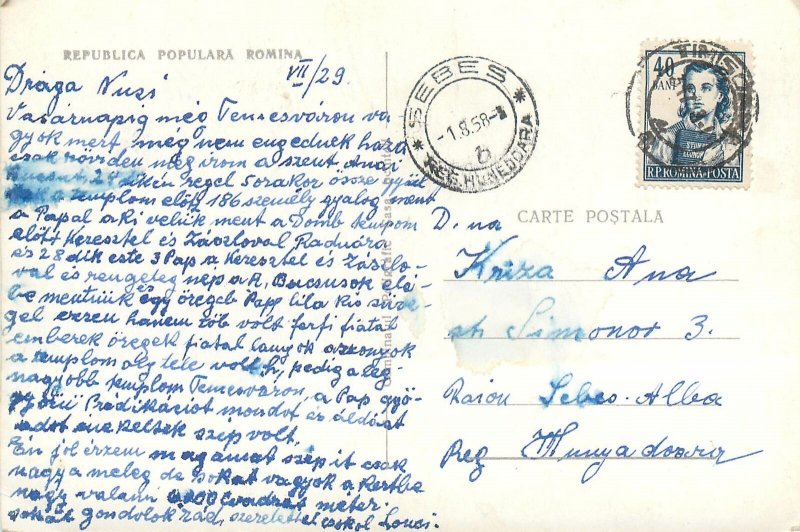 REPUBLICA POPULARĂ ROMINA
VII/29
Drága Nusi
Vasárnapig még Temesváron va
gyok mert még nem engednek haza
csak röviden meg irom a szent Anai
Bucsut 28 dikén regel 5 orakor össze gyül
tek a templom előtt 186 személy gyalog ment
a Papal aki velük ment a Domb templom
előtt Keresztel és Zászloval Radnára
és 28 dik este 3 Pap a Keresztel és Zászlo-
val és rengeteg nép a R, Bucsusok elé
be mentünk és egy öregeb Papp lila kis süve-
gel ezren hanem töb volt ferfi fiatal
emberek öregek fiatal lanyok aszonyok
a templom alig tele volt, pedig a leg-
nagyobb templom Temesváron, a Pap gyö-
nyörü Prédikáciot mondot és áldást
adot énekeltek szép volt.
Én jol érzem magamat szép it csak
nagy a meleg de sokat vagyok a kertbe
nagy valami 4000 cvadrát méter
sokat gondolok rád, szeretettel csokol Lonci.
SEBEȘ
-1.8.58-
b
REG. HUNEDOARA
TIMIȘOARA
40
BANI
R.P. ROMINA-POSTA
CARTE POȘTALA
D. na
Kriza Ana
str Simonov 3.
Raion Sebes-Alba
Reg Hunyadoara